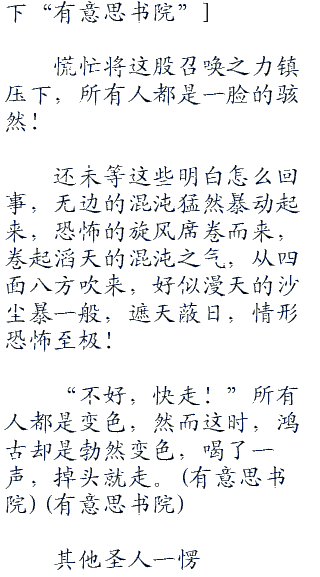 下“有意思书院”]
慌忙将这股召唤之力镇
压下，所有人都是一脸的骇
然！
还未等这些明白怎么回
事，无边的混沌猛然暴动起
来，恐怖的旋风席卷而来，
卷起滔天的混沌之气，从四
面八方吹来，好似漫天的沙
尘暴一般，遮天蔽日，情形
恐怖至极！
“不好，快走！”所有
人都是变色，然而这时，鸿
古却是勃然变色，喝了一
声，掉头就走。(有意思书
院)(有意思书院)
其他圣人一愣